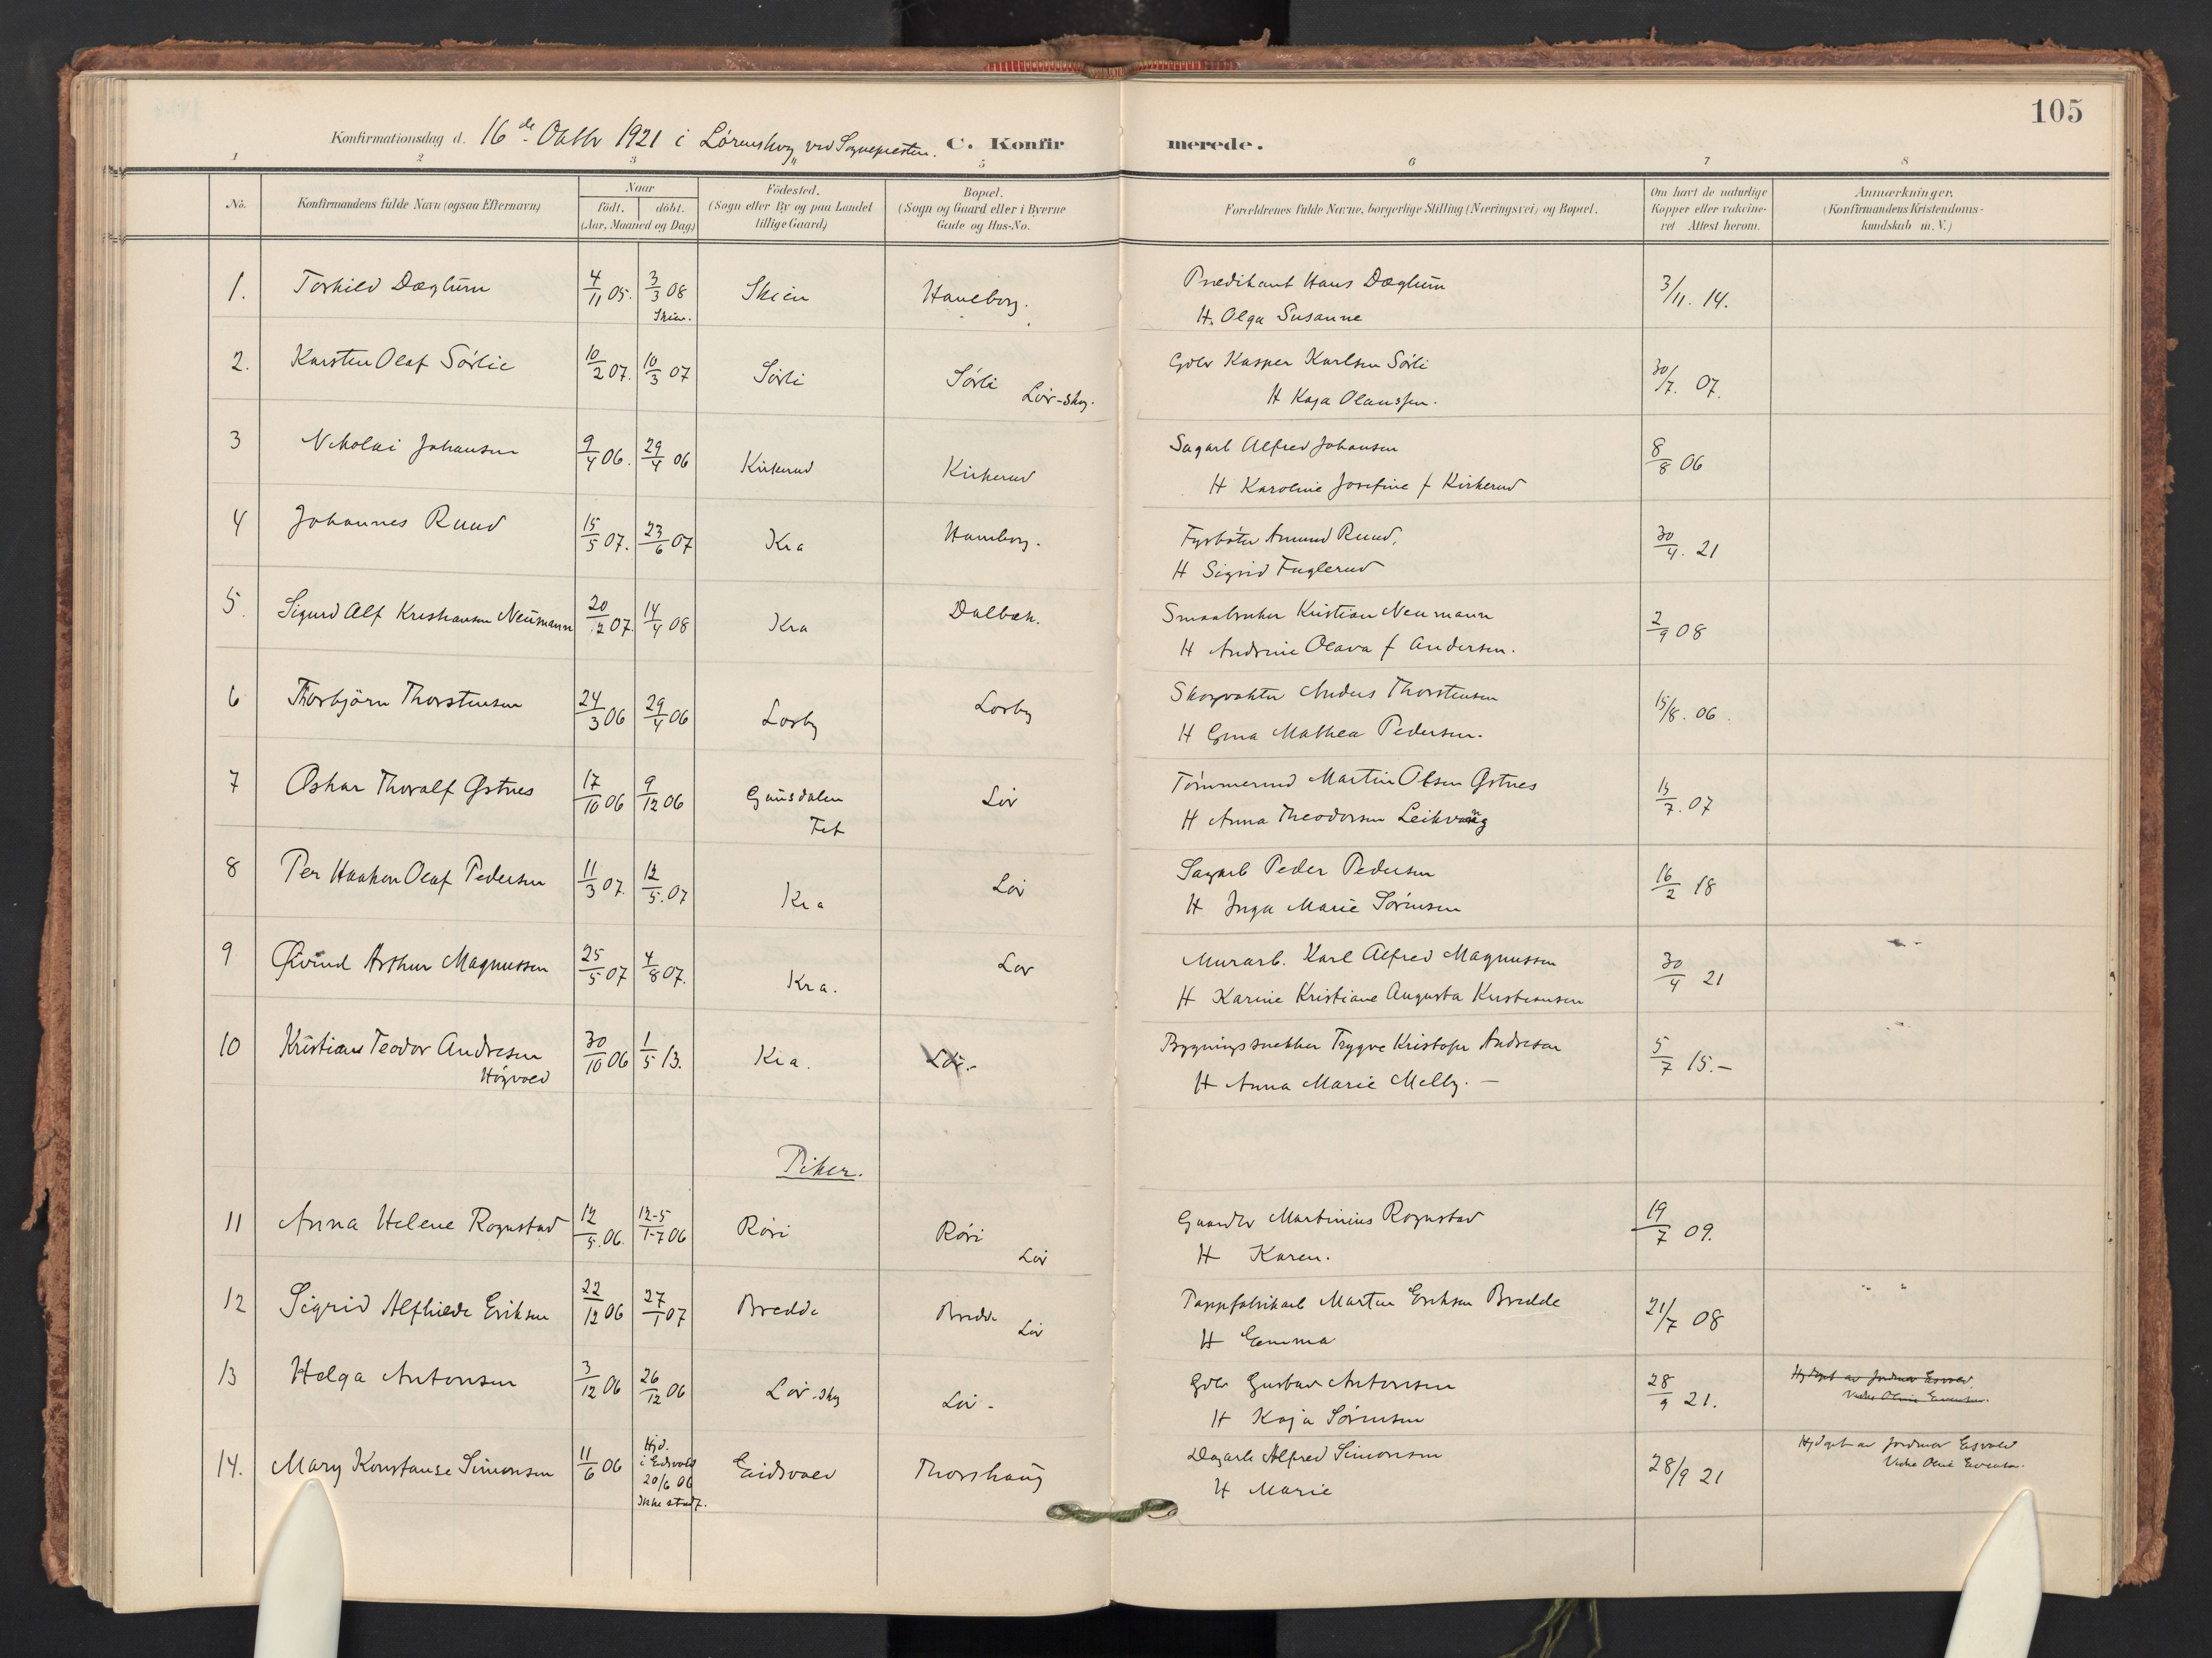 105
Konfirmationsdag d. 16de Oktbr 1921 i Lørenskog ved Sognepresten. C. Konfirmerede.
1 2 3 5 6 7 8
No. Konfirmandens fulde Navn (ogsaa Efternavn) Naar født. døbt. (Aar, Maaned og Dag) Födested. (Sogn eller By og paa Landet tillige Gaard) Bopæl. (Sogn og Gaard eller i Byerne Gade og Hus-No. Forældrenes fulde Navne, borgerlige Stilling (Næringsvei) og Bopæl. Om havt de naturlige Kopper eller vakcineret Attest herom. Anmærkninger. (Konfirmandens Kristendomskundskab m. V.)
1. Torhild Dæglum 4/11 05. 3/3 08 Skien. Skien Haneborg. Prædikant Hans Dæglum 3/11. 14.
H. Olga Susanne
2. Karsten Olaf Sørlie 10/2 07. 10/3 07 Sørli Sørli Lør-skog. Gdbr Kasper Karlsen Sørli 30/7. 07.
H Kaja Olaussen.
3 Nikolai Johansen 9/4 06. 29/4 06 Kirkerud Kirkerud Sagarb Alfred Johansen 8/8 06
H Karoline Josefine f Kirkerud
4 Johannes Ruud 15/5 07. 23/6 07 Kra Haneborg. Fyrbøter Amund Ruud. 30/4. 21
H Sigrid Fuglerud
5. Sigurd Alf Kristiansen Neumann 20/12 07. 14/4 08 Kra Dalbak. Smaabruker Kristian Neumann 2/9 08
H Andrine Olava f Andersen.
6 Thorbjörn Thorstensen 24/3 06 29/4 06 Losby Losby Skogvokter Anders Thorstensen 15/8. 06.
H Gina Mathea Pedersen.
7 Oskar Thoralf Østnes 17/10 06 9/12 06 Fet Lør Tømmermd Martin Olsen Østnes 13/7. 07
H Anna Theodorsen Leikvang
8 Per Haakon Olaf Pedersen 11/3 07. 12/5. 07 Kra Lør Sagarb Peder Pedersen 16/2 18
H Inga Marie Sørensen
9 Øivind Arthur Magnussen 25/5 07 4/8 07. Kra. Lør Murarb. Karl Alfred Magnussen 30/4 21
H Karine Kristiane Augusta Kristiansen
10 Kristian Teodor Andresen Høgvold 30/10 06 1/5 13. Kra. Lør.- Bygningssnekker Trygve Kristofer Andresen 5/7 15.-
H Anna Marie Melby. -
Piker.
11 Anna Helene Rognstad 12/5. 06. 12-5/1-7 06 Røri Røri Lør Gaardbr Martinius Rognstad 19/7 09.
H Karen.
12 Sigrid Alfhilde Eriksen 22/12 06 27/1 07 Bredde Bredde Lør Pappfabrikarb Martin Eriksen Bredde 21/7 08
H Emma
13 Helga Antonsen 3/12 06 26/12 06 Lør-skog Lør- Gdbr Gustav Antonsen 28/9 21. Hjdøpt av Jordmor Eidsvold.
H Kaja Sørensen
14. Mary Konstanse Simonsen 11/6 06 Hjd. i Eidsvold 20/6 06 Ikke stadf. Eidsvold Thorshaug Dagarb Alfred Simonsen 28/9 21 Hjdøpt av Jordmor Eidsvold
H Marie